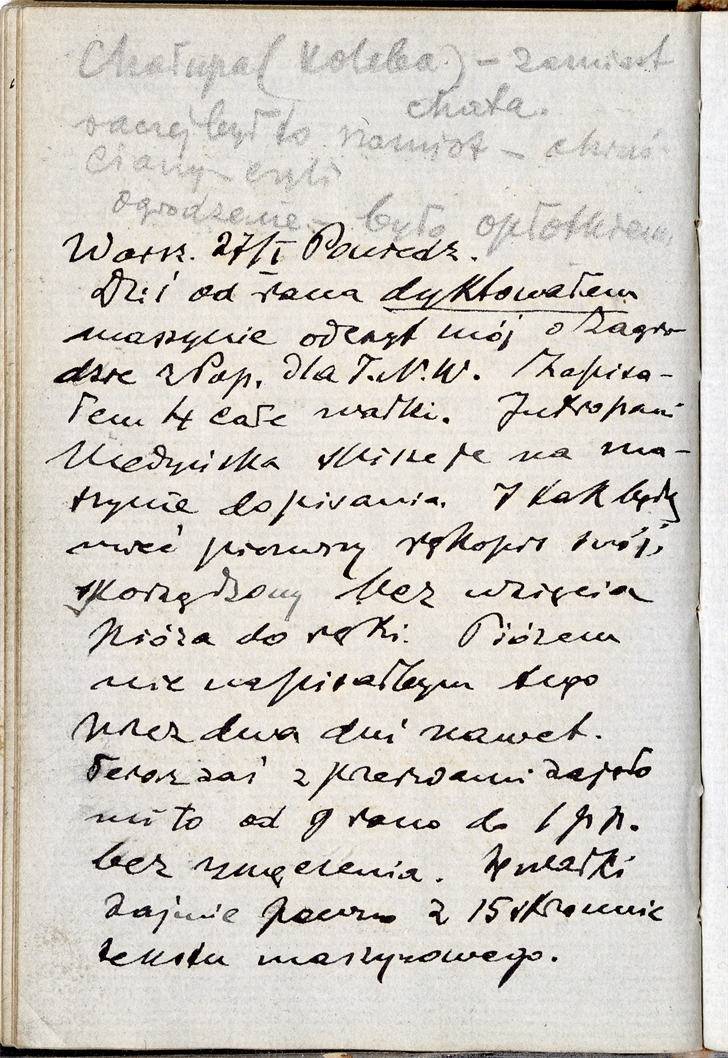 Chałupa (Koleba) – zamiast
chata.
raczej był to namiot – chruś
ciany – czyli
ogrodzenie – było opłotkiem.
Warsz. 27/I Poniedz.
Dziś od rana dyktowałem
maszynie odczyt mój o Zagro-
dzie z Pap. dla T.N.W. Zapisa-
łem 4 całe wałki. Jutro pani
Medyńska skieje na ma-
szynie do pisania. I tak będę
mieć pierwszy rękopis swój,
sporządzony bez wzięcia
pióra do ręki. Piórem
nie napisałbym tego
przez dwa dni nawet.
Teraz zaś z przerwami zajęło
mi to od 9 rano do 1 p.p.
bez zmęczenia. 4 wałki
zajmie pewno z 15 stronnic
tekstu maszynowego.